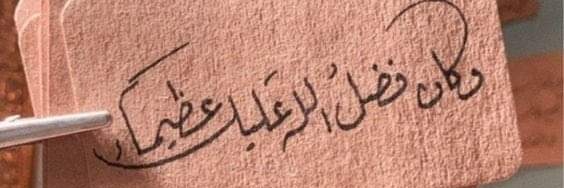 وكان فضلُ الله عَليك عظيماً